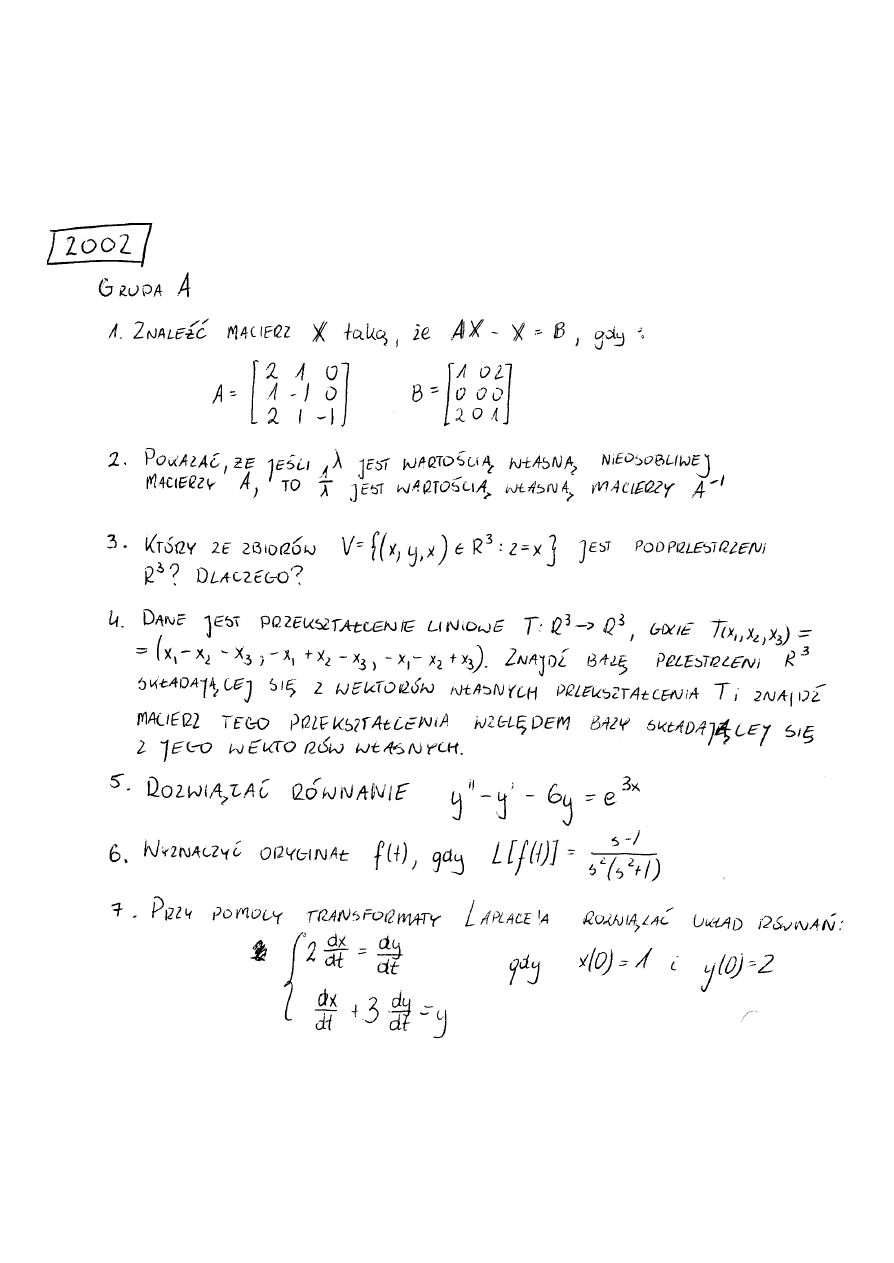 2002
GRUPA A
1. ZNALEŹĆ MACIERZ X taką, że AX - X = B, gdy :
A = [2 1 0; 1 -1 0; 2 1 -1] B = [1 0 2; 0 0 0; 2 0 1]
2. POKAZAĆ, ŻE JEŚLI λ JEST WARTOŚCIĄ WŁASNĄ NIEOSOBLIWEJ
MACIERZY A, TO 1/λ JEST WARTOŚCIĄ WŁASNĄ MACIERZY A⁻¹
3. KTÓRY ZE ZBIORÓW V={(x, y, x) ∈ R³ : z=x} JEST PODPRZESTRZENI
R³? DLACZEGO?
4. DANE JEST PRZEKSZTAŁCENIE LINIOWE T: R³→R³, GDZIE T(x₁,x₂,x₃) =
= (x₁-x₂-x₃, -x₁+x₂-x₃, -x₁-x₂+x₃). ZNAJDŹ BAZĘ PRZESTRZENI R³
SKŁADAJĄCEJ SIĘ Z WEKTORÓW WŁASNYCH PRZEKSZTAŁCENIA T i ZNAJDŹ
MACIERZ TEGO PRZEKSZTAŁCENIA WZGLĘDEM BAZY SKŁADAJĄCEJ SIĘ
Z JEGO WEKTORÓW WŁASNYCH.
5. ROZWIĄZAĆ RÓWNANIE y'' - y' - 6y = e³ˣ
6. WYZNACZYĆ ORYGINAŁ f(t), gdy L[f(t)] = (s-1)/(s²(s²+1))
7. PRZY POMOCY TRANSFORMATY LAPLACE'A ROZWIĄZAĆ UKŁAD RÓWNAŃ:
{ 2 dx/dt = dy/dt gdy x(0) = 1 i y(0) = 2
dx/dt + 3 dy/dt = y